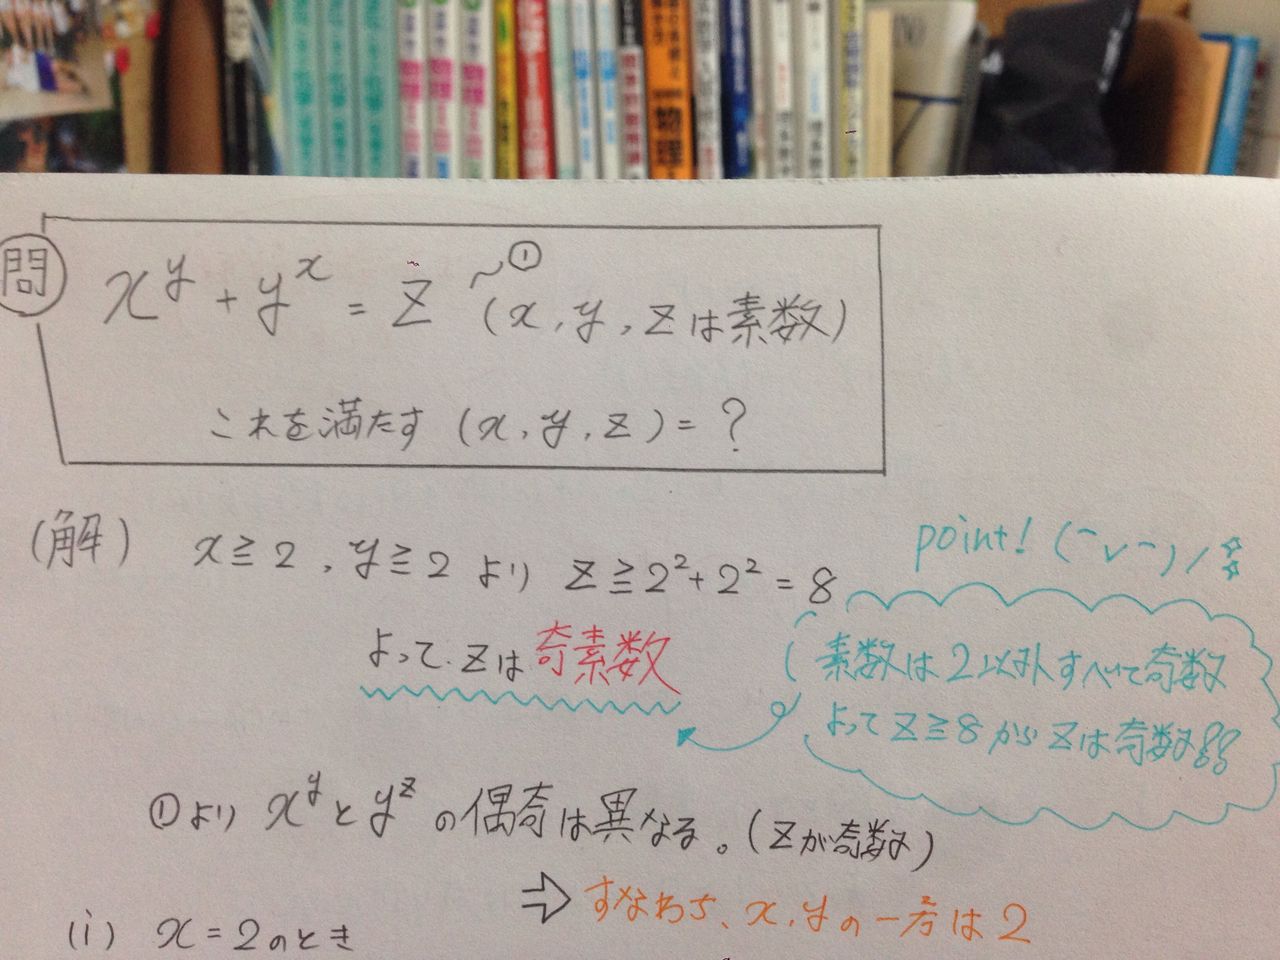 物理
問 x^y + y^x = z ~① (x, y, zは素数)
これを満たす (x, y, z) = ?
(解) x≧2, y≧2 より z≧2²+2²=8
よって、zは奇素数
point! (ー∨ー)/☆☆
素数は2以外すべて奇数
よってz≧8からzは奇数!!
①より x^yとy^zの偶奇は異なる。(zが奇数)
⇒ すなわち、x, yの一方は2
(i) x=2のとき